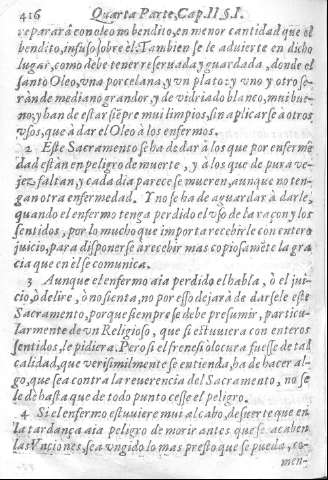 416 Quarta Parte, Cap. II §. I.
reparará con oleo no bendito, en menor cantidad que el
bendito, infuso sobre el: Tambien se le aduierte en dicho
lugar, como debe tener reseruada y guardada, donde el
santo Oleo, vna porcelana, y vn plato: y vno y otro se-
ràn de mediano grandor, y de vidriado blanco, mui bue-
no; y han de estar siẽpre mui limpios, sin aplicarse à otros
vsos, que à dar el Oleo à los enfermos.
2 Este Sacramento se ha de dar à los que por enferme
dad están en peligro de muerte, y à los que de pura ve-
jez faltan, y cada dia parece se mueren, aunque no ten-
gan otra enfermedad. Y no se ha de aguardar à darle,
quando el enfermo tenga perdido el vso de la raçon y los
sentidos, por lo mucho que importa recebirle con entero
juicio, para disponerse à recebir mas copiosamẽte la gra
cia que en èl se comunica.
3 Aunque el enfermo aia perdido el habla, ò el jui-
cio, ò delire, ò no sienta, no por esso dejarà de darsele este
Sacramento, porque siempre se debe presumir, particu-
larmente de vn Religioso, que si estuuiera con enteros
sentidos, le pidiera. Pero si el frenesi o locura fuesse de tal
calidad, que verisimilmente se entienda, ha de hacer al-
go, que sea contra la reuerencia del Sacramento, no se
le dè hasta que de todo punto cesse el peligro.
4 Si el enfermo estuuiere mui al cabo, de suerte que en
la tardança aia peligro de morir antes que se acaben
las Vnciones, sea vngido lo mas presto que se pueda, co-
men-